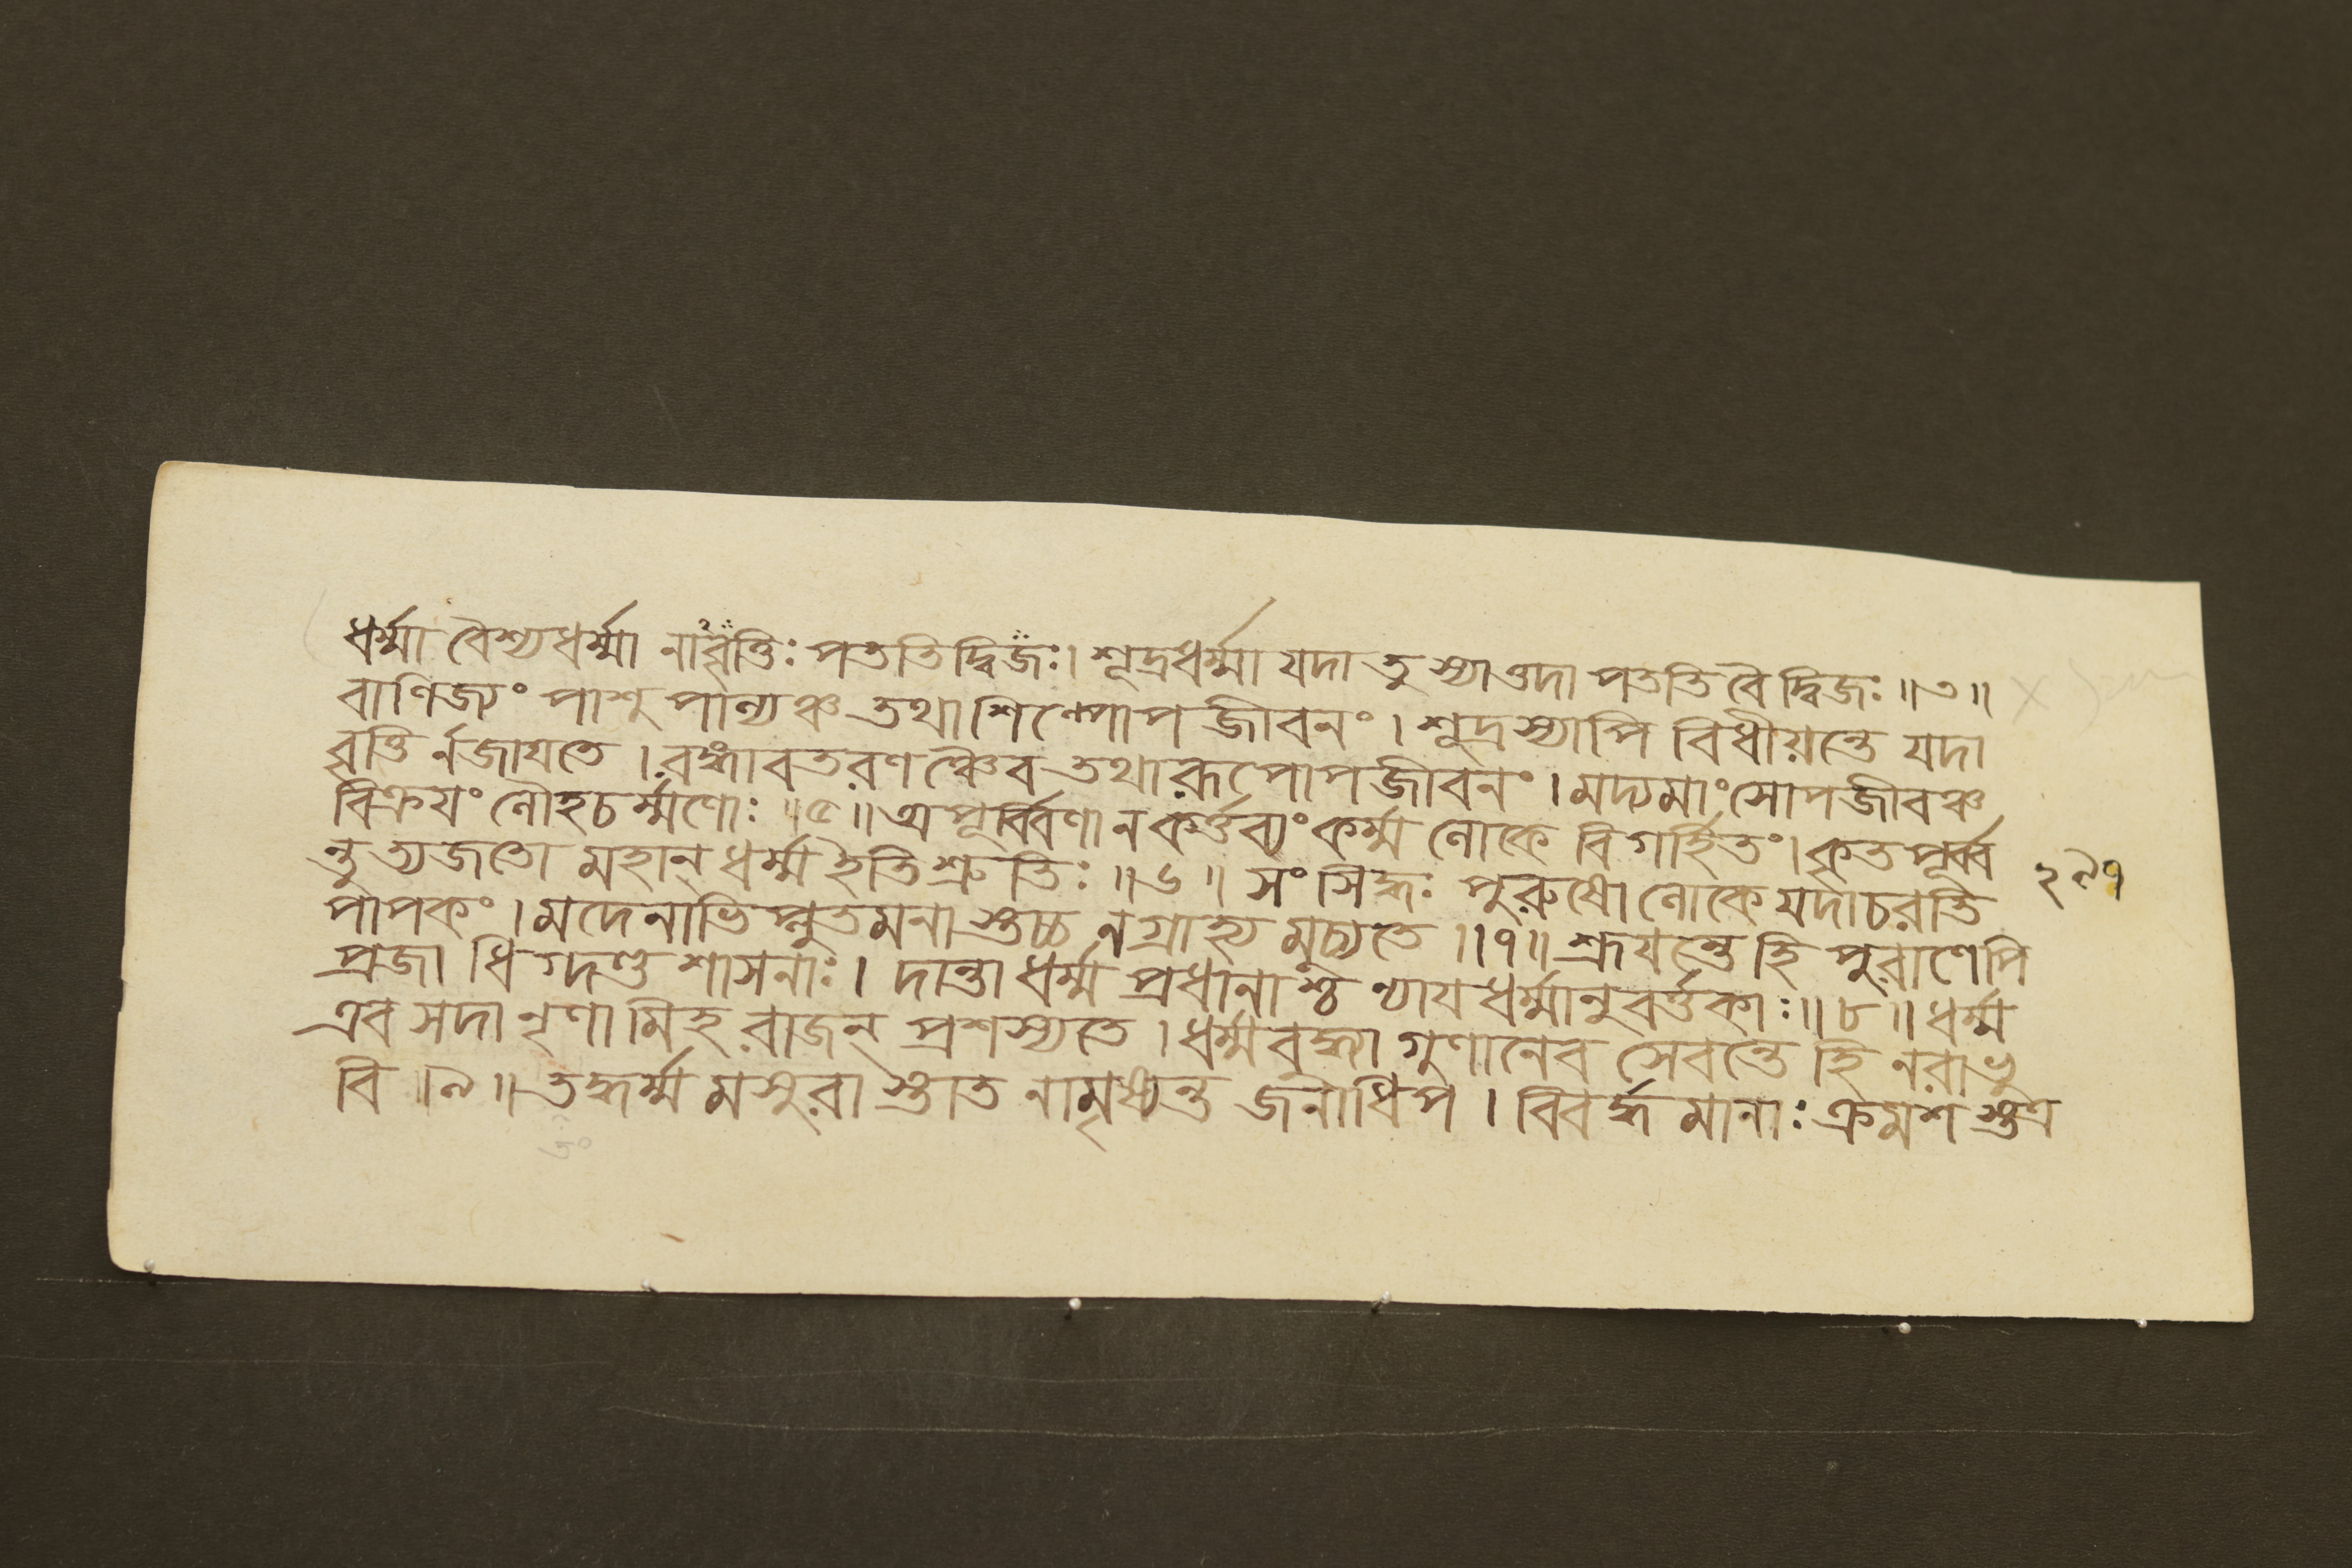 ধর্ম্মা বৈশ্যধর্ম্মা নাবৃত্তিঃ পততি দ্বিজঃ। শূদ্রধর্ম্মা যদা তু স্যাত্তদা পততি বৈ দ্বিজঃ ॥৩॥
বাণিজ্যং পাশুপাল্যঞ্চ তথা শিল্পোপজীবনং। শূদ্রস্যাপি বিধীয়ন্তে যদা
বৃত্তি র্নজাযতে। রঙ্গাবতরণঞ্চৈব তথা রূপোপজীবনং। মদ্যমাংসোপজীবঞ্চ
বিক্রযং লৌহচর্ম্মণোঃ ॥৫॥ অপূর্ব্বিণা ন কর্ত্তব্যং কর্ম্ম লোকে বিগর্হিতং। কৃতপূর্ব্ব
ন্তু ত্যজতো মহান্ ধর্ম্ম ইতি শ্রুতিঃ ॥৬॥ সংসিদ্ধঃ পুরুষো লোকে যদাচরতি
পাপকং। মদেনাভিপ্লুতমনাস্তচ্চ ন গ্রাহ্য মুচ্যতে ॥৭॥ শ্রূযন্তে হি পুরাণেপি
প্রজা ধিগ্দণ্ড শাসনাঃ। দান্তা ধর্ম্ম প্রধানাশ্চ ন্যাযধর্ম্মানুবর্ত্তকাঃ ॥৮॥ ধর্ম্ম
এব সদা নৃণা মিহ রাজন্ প্রশস্যতে। ধর্ম্মবৃদ্ধা গুণানেব সেবন্তে হি নরা ভু
বি ॥৯॥ তদ্ধর্ম্ম মসুরা স্তাত নামৃষ্যন্ত জনাধিপ। বিবর্দ্ধমানাঃ ক্রমশ স্তত্র
২৯৭